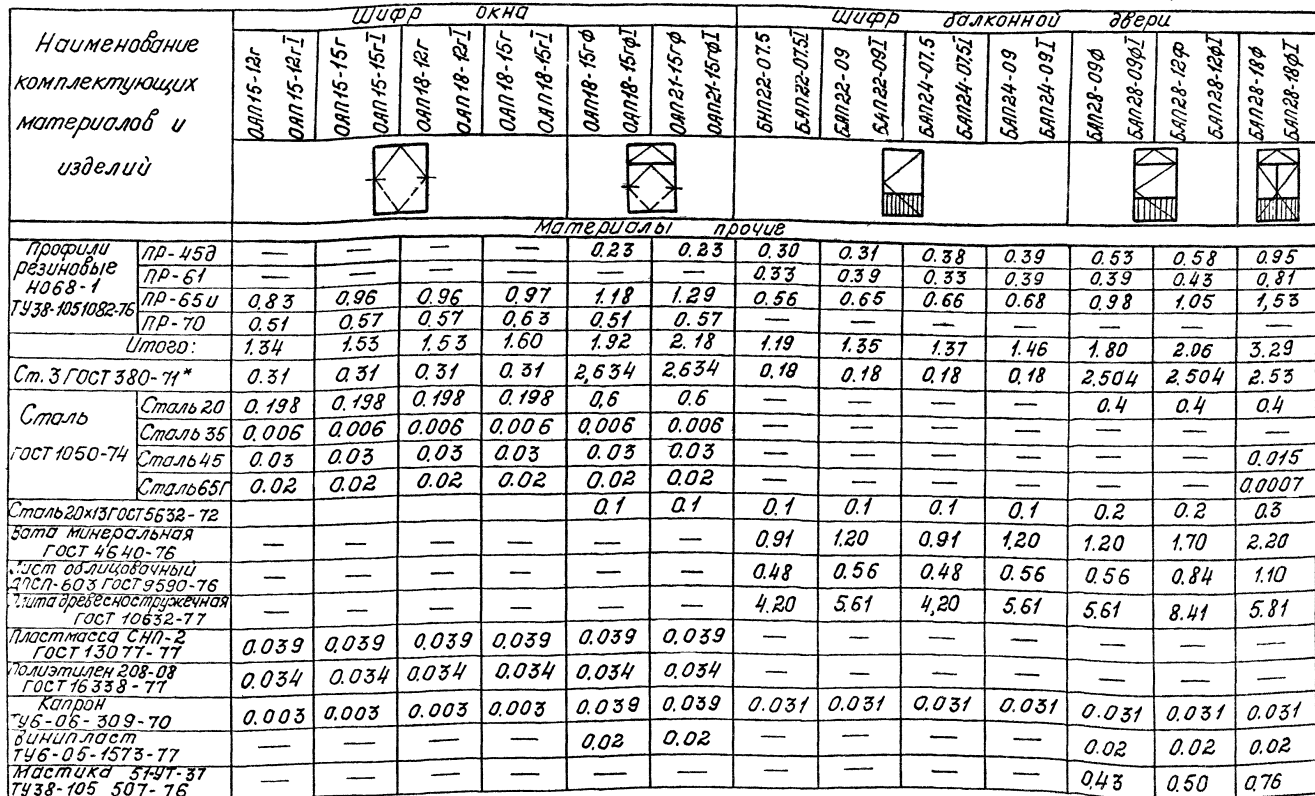 Наименование комплектующих материалов и изделий
Шифр окна
Шифр балконной двери
ОАП15-12г ОАП15-12гI
ОАП15-15г ОАП15-15гI
ОАП18-12г ОАП18-12гI
ОАП18-15г ОАП18-15гI
ОАП18-15гф ОАП18-15гфI
ОАП21-15гф ОАП21-15гфI
БНП22-07.5 БАП22-07.5I
БАП22-09 БАП22-09I
БАП24-07.5 БАП24-07.5I
БАП24-09 БАП24-09I
БАП28-09ф БАП28-09фI
БАП28-12ф БАП28-12фI
БАП28-18ф БАП28-18фI
Материалы прочие
Профили резиновые НО68-1 ТУ38-1051082-76
ПР-45д — — — — 0.23 0.23 0.30 0.31 0.38 0.39 0.53 0.58 0.95
ПР-61 — — — — — — 0.33 0.39 0.33 0.39 0.39 0.43 0,81
ПР-65и 0.83 0.96 0.96 0,97 1.18 1.29 0.56 0.65 0.66 0.68 0.98 1.05 1,53
ПР-70 0.51 0.57 0.57 0.63 0.51 0.57 — — — — — — —
Итого: 1.34 1.53 1.53 1.60 1.92 2.18 1.19 1.35 1.37 1.46 1.80 2.06 3.29
Ст. 3 ГОСТ 380-71* 0.31 0.31 0.31 0.31 2,634 2.634 0.18 0.18 0.18 0.18 2.504 2.504 2.53
Сталь ГОСТ 1050-74
Сталь 20 0.198 0.198 0.198 0.198 0,6 0.6 — — — — 0.4 0.4 0.4
Сталь 35 0.006 0.006 0.006 0.006 0,006 0.006 — — — — — — —
Сталь 45 0.03 0.03 0.03 0.03 0.03 0.03 — — — — — — 0.015
Сталь 65Г 0.02 0.02 0.02 0.02 0.02 0.02 — — — — — — 0,0007
Сталь 20х13 ГОСТ 5632-72 0.1 0.1 0.1 0.1 0.1 0.1 0.2 0.2 0.3
Вата минеральная ГОСТ 4640-76 — — — — — — 0.91 1.20 0.91 1,20 1.20 1.70 2.20
Лист облицовочный ДПСП-603 ГОСТ 9590-76 — — — — — — 0.48 0.56 0.48 0.56 0.56 0.84 1.10
Плита древесностружечная ГОСТ 10632-77 — — — — — — 4.20 5.61 4,20 5.61 5.61 8.41 5.81
Пластмасса СНП-2 ГОСТ 13077-77 0.039 0.039 0.039 0.039 0.039 0,039 — — — — — — —
Полиэтилен 208-08 ГОСТ 16338-77 0.034 0.034 0.034 0.034 0.034 0.034 — — — — — — —
Капрон ТУ6-06-309-70 0.003 0.003 0.003 0.003 0.039 0.039 0.031 0.031 0.031 0.031 0.031 0.031 0.031
Винипласт ТУ6-05-1573-77 — — — — 0.02 0.02 — — — — 0.02 0.02 0.02
Мастика 51-УТ-37 ТУ38-105 507-76 — — — — — — — — — — 0,43 0.50 0.76